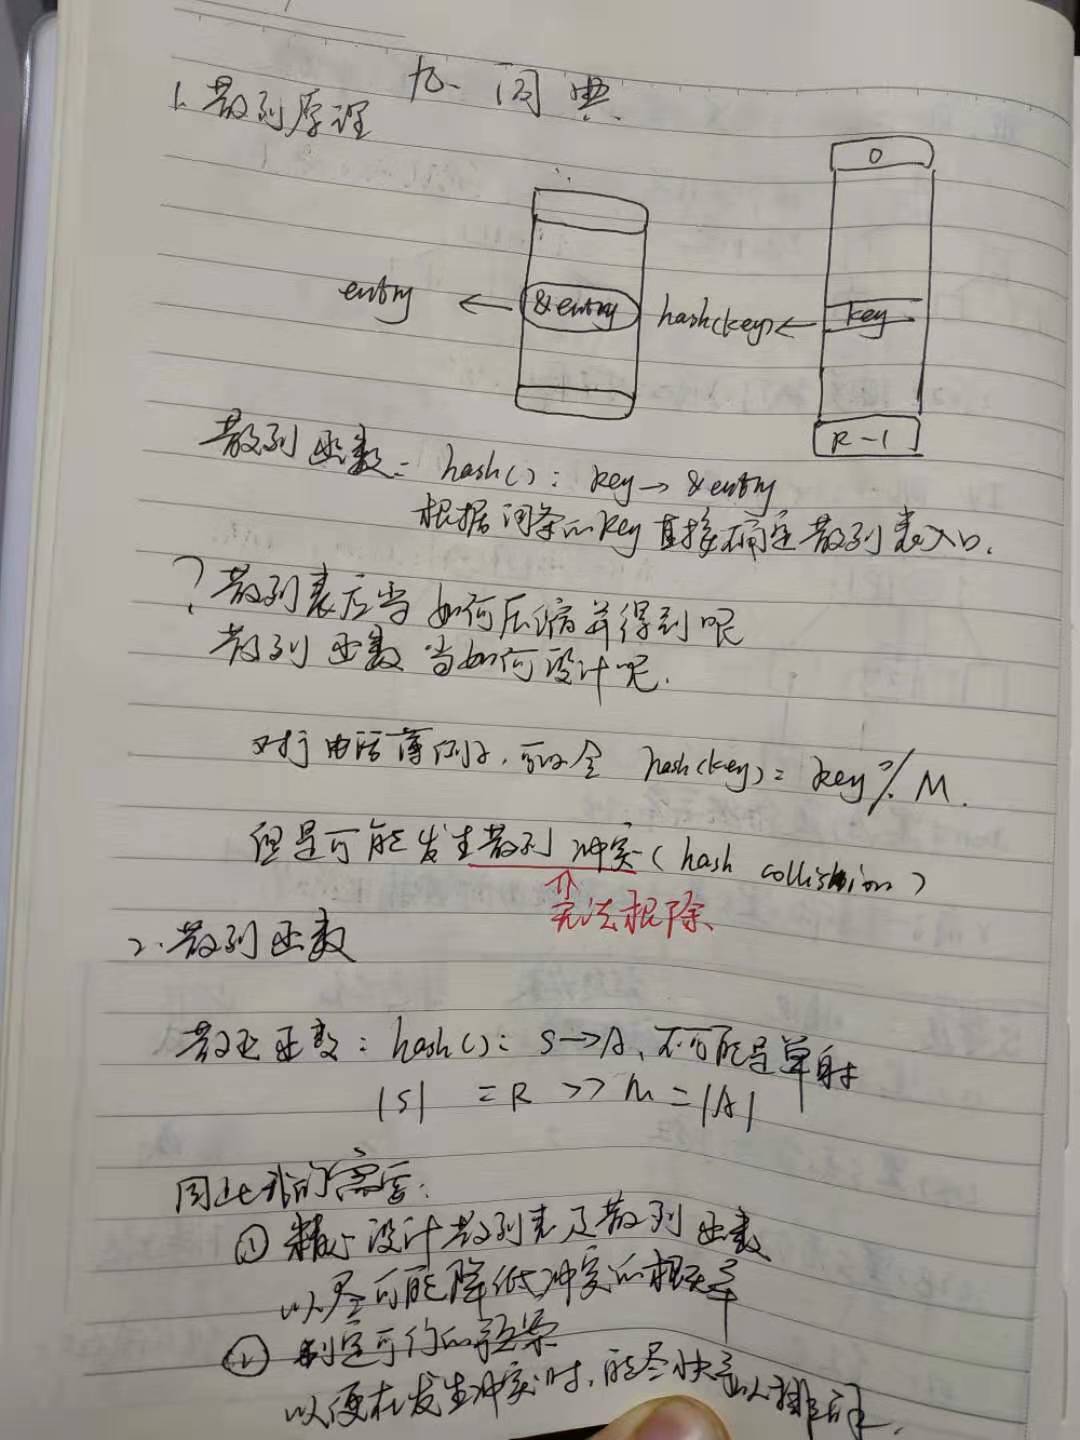 九. 词典
1. 散列原理
0
entry ← &entry hash(key) ← key
R-1
散列函数: hash(): key → &entry
根据词条的key直接确定散列表入口.
? 散列表应当如何压缩并得到呢
散列函数当如何设计呢.
对于电话薄例子, 可以令 hash(key) = key % M.
但是可能发生散列冲突 (hash collision)
⇑
无法根除
2. 散列函数
散列函数: hash(): S→A, 不可能是单射
|S| = R >> M = |A|
因此我们需要:
① 精心设计散列表及散列函数
以尽可能降低冲突的概率
② 制定可行的预案
以便在发生冲突时, 能尽快予以排解.